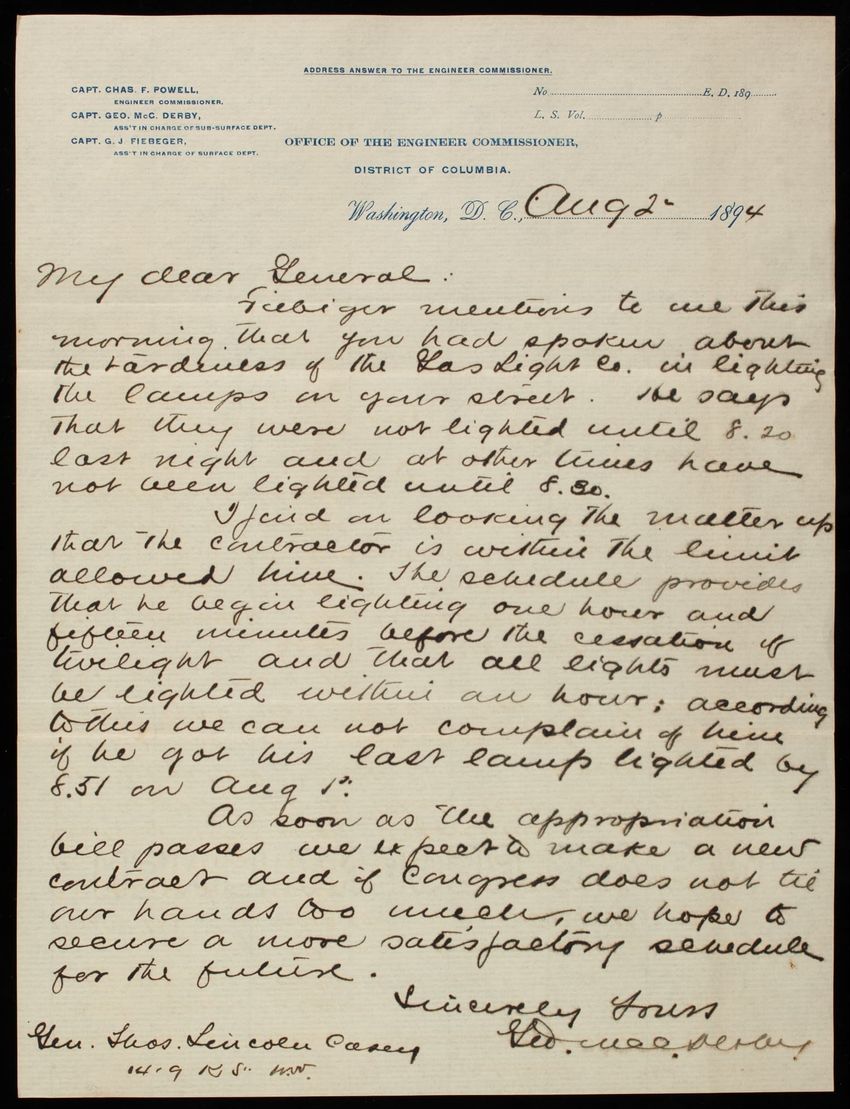 ADDRESS ANSWER TO THE ENGINEER COMMISSIONER.
CAPT. CHAS. F. POWELL,
ENGINEER COMMISSIONER.
CAPT. GEO. McC. DERBY,
ASS'T IN CHARGE OF SUB-SURFACE DEPT.
CAPT. G. J. FIEBEGER,
ASS'T IN CHARGE OF SURFACE DEPT.
No. E. D. 189
L. S. Vol. p
OFFICE OF THE ENGINEER COMMISSIONER,
DISTRICT OF COLUMBIA.
Washington, D. C., Aug 2 1894
My dear General:
Fiebiger mentions to me this
morning that you had spoken about
the tardiness of the Gas Light Co. in lighting
the lamps on your street. He says
that they were not lighted until 8.20
last night and at other times have
not been lighted until 8.30.
I find on looking the matter up
that the contractor is within the limit
allowed him. The schedule provides
that he begin lighting one hour and
fifteen minutes before the cessation of
twilight and that all lights must
be lighted within an hour; according
to this we can not complain of him
if he got his last lamp lighted by
8.51 on Aug 1st.
As soon as the appropriation
bill passes we expect to make a new
contract and if Congress does not tie
our hands too much, we hope to
secure a more satisfactory schedule
for the future.
Sincerely Yours
Geo. McC. Derby.
Gen. Thos. Lincoln Casey
1419 K St. N.W.